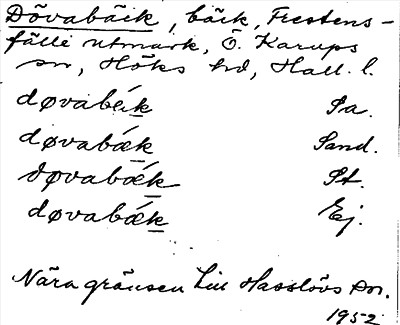 Dövabäck, bäck, Frestens-
fälle utmark, Ö. Karups
sn, Höks hd, Hall. l.
døvabæk Pa.
døvabæk Sand.
døvabæk St.
døvabæk Ej.
Nära gränsen till Hasslövs sn.
1952